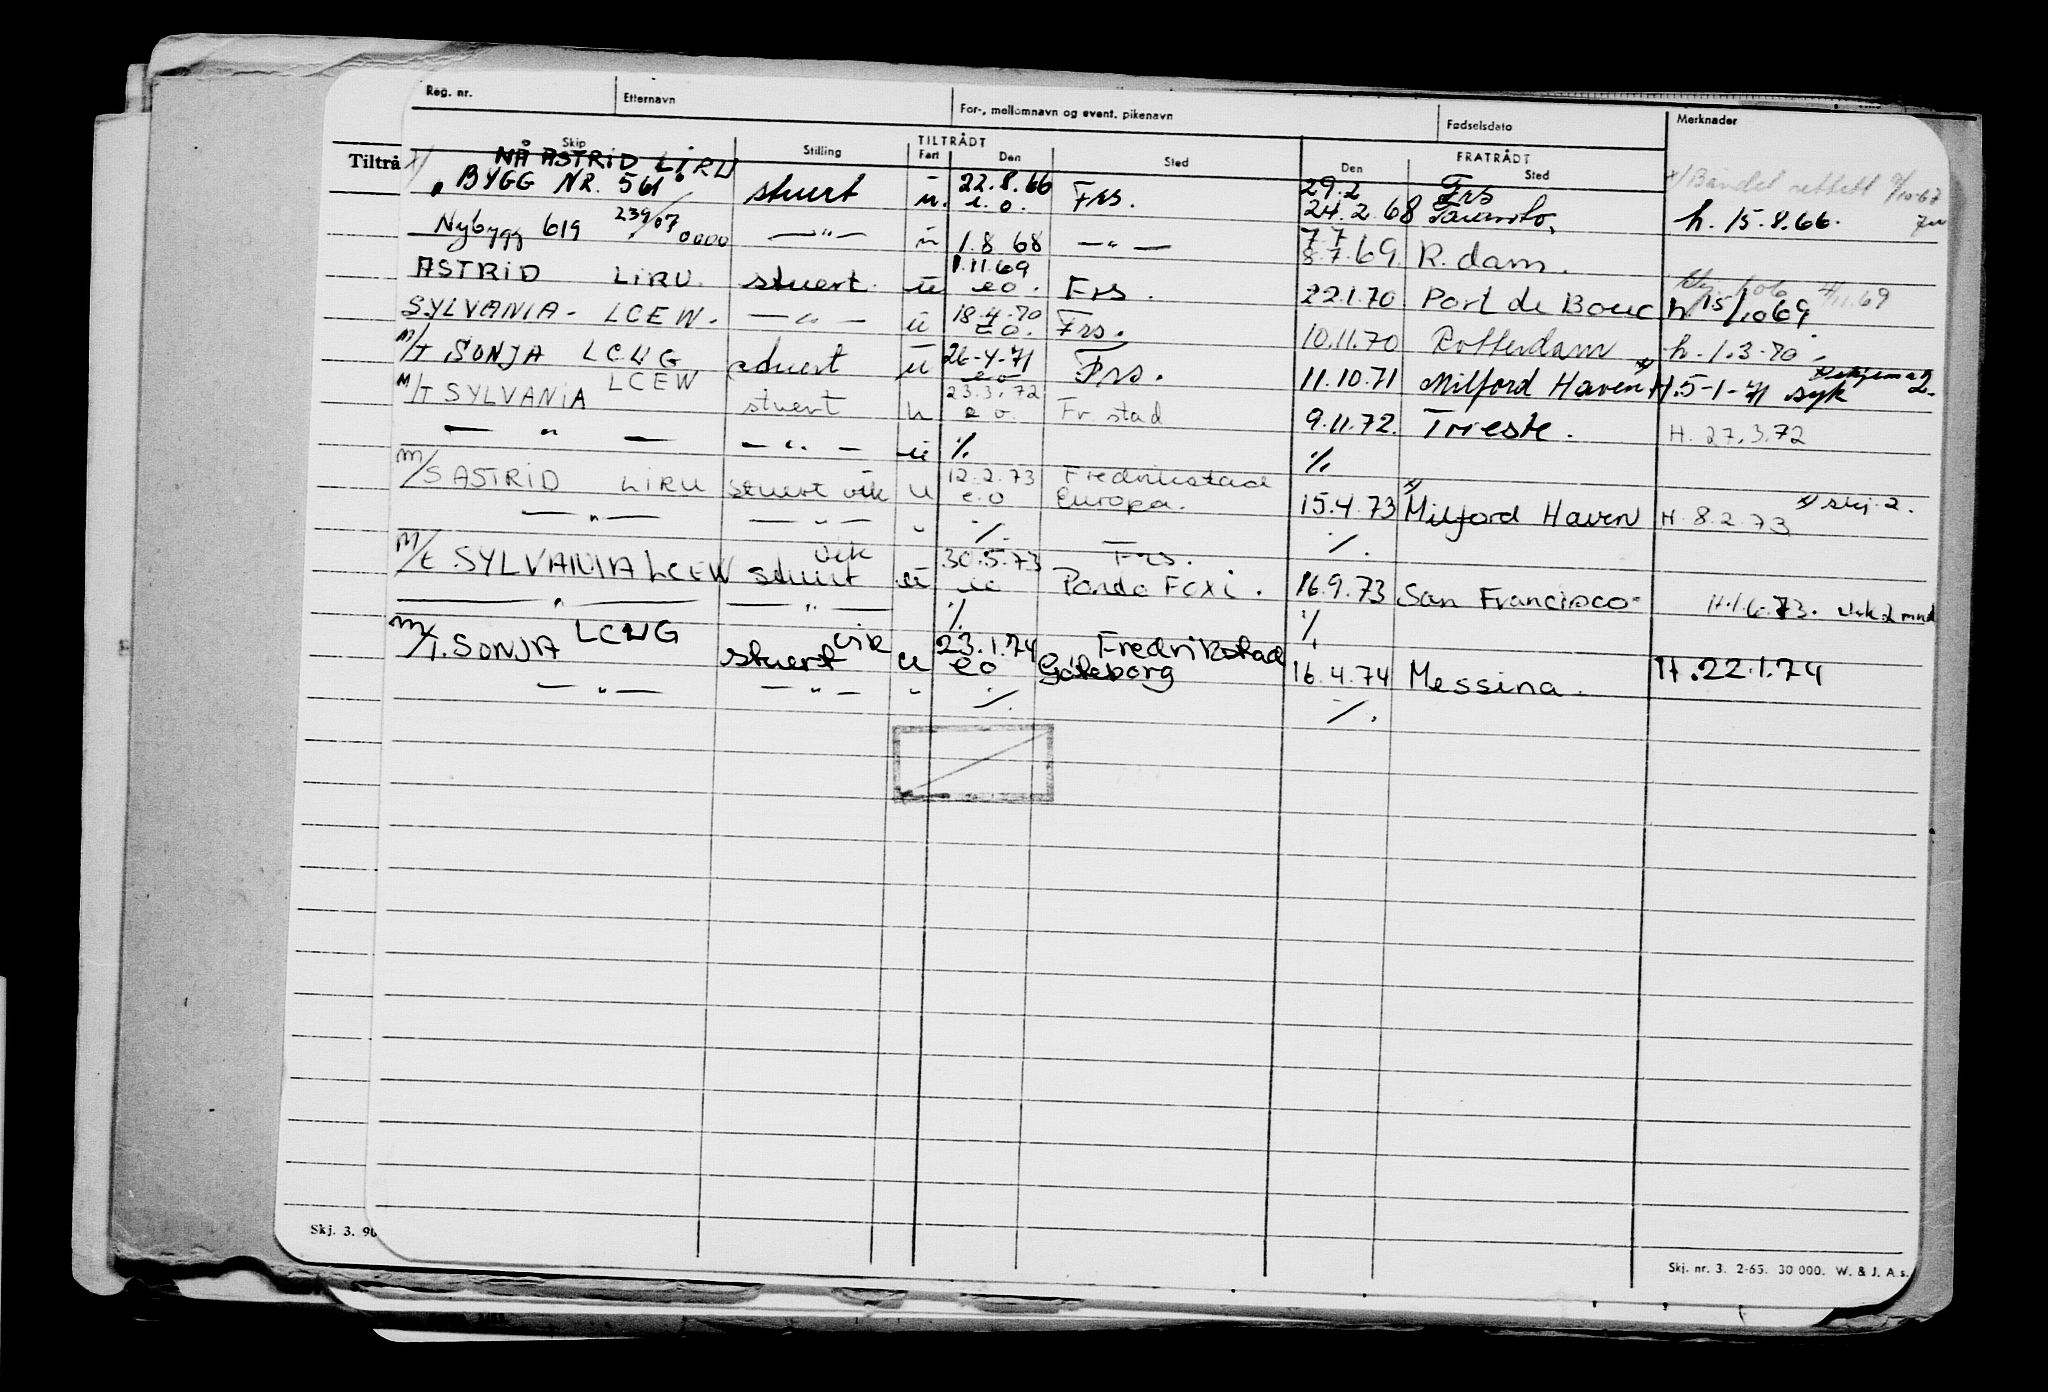 Reg. nr. Etternavn For-, mellomnavn og event. pikenavn Fødselsdato Merknader
Tiltrå Skip Stilling TILTRÅDT Fart Den Sted FRATRÅDT Den Sted
x/ NÅ ASTRID LIRU 22.8.66 29.2 Frs x/
BYGG NR. 561 stuert u. e.o. Frs. 24.2.68 h. 15.8.66.
Nybygg 619 239/07 0000 —"— u 1.8 68 —"— 7.7 8.7.69 R.dam.
ASTRID LIRU. stuert u 1.11.69 eo. Frs. 22.1.70 Port de Bouc h 15/10 69 4/11.69
SYLVANIA. LCEW. —"— u 18.4.70 eo. Frs. 10.11.70 Rotterdam h. 1.3.70.
M/T SONJA LCWG stuert u 26-4-71 eo Frs. 11.10.71 Milford Haven x) H.5-1-71 x) skjema 2. syk
M/T SYLVANIA LCEW stuert u 23.3.72 e o. Fr.stad 9.11.72. Trieste. H. 27.3.72
— " — — " — u %. %.
M/S ASTRID LIRU stuert vik u 12.2.73 e.o Fredrikstad Europa. 15.4.73 x) Milford Haven H. 8.2.73 x) skj. 2.
— " — — " — " %. %.
M/t. SYLVANIA LCEW stuert vik u 30.5.73 eo Frs. 16.9.73 San Francisco
— " — — " — %. %.
M/T. SONJA LCWG stuert vik u 23.1.74 eo Fredrikstad Göteborg 16.4.74 Messina. H.22.1.74
— " — — " — " %. %.
Skj. 3. 90
Skj. nr. 3. 2-65. 30 000. W. & J. A.s.